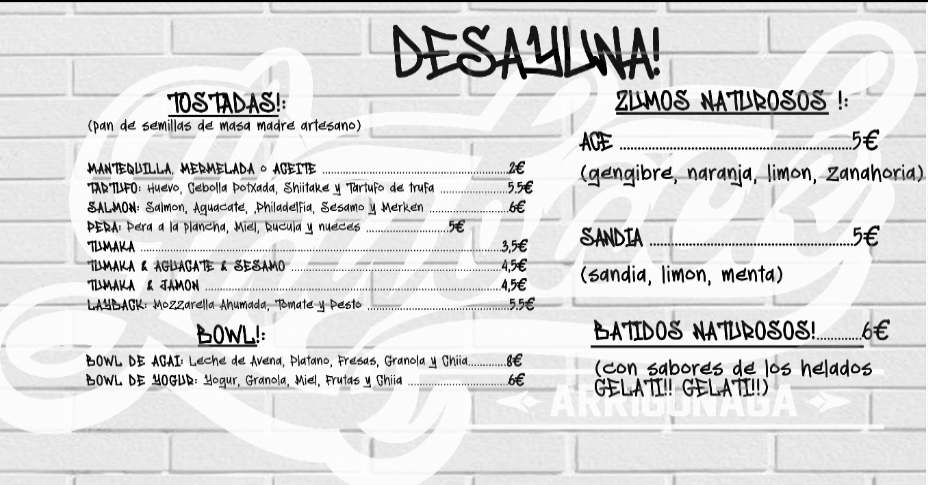 DESAYUNA!
TOSTADAS!:
(pan de semillas de masa madre artesano)
MANTEQUILLA, MERMELADA o ACEITE 2€
TARTUFO: Huevo, Cebolla Potxada, Shiitake y Tartufo de trufa 5.5€
SALMON: Salmon, Aguacate, ,Philadelfia, Sesamo y Merken 6€
PERA: Pera a la plancha, Miel, Rucula y nueces 5€
TUMAKA 3,5€
TUMAKA & AGUACATE & SESAMO 4,5€
TUMAKA & JAMON 4,5€
LAYBACK: Mozzarella Ahumada, Tomate y Pesto 5.5€
BOWL!:
BOWL DE ACAI: Leche de Avena, Platano, Fresas, Granola y Chiia 8€
BOWL DE YOGUR: Yogur, Granola, Miel, Frutas y Chiia 6€
ZUMOS NATUROSOS !:
ACE 5€
(gengibre, naranja, limon, zanahoria)
SANDIA 5€
(sandia, limon, menta)
BATIDOS NATUROSOS! 6€
(con sabores de los helados
GELATI!! GELATI!!)
ARRIGUNAGA